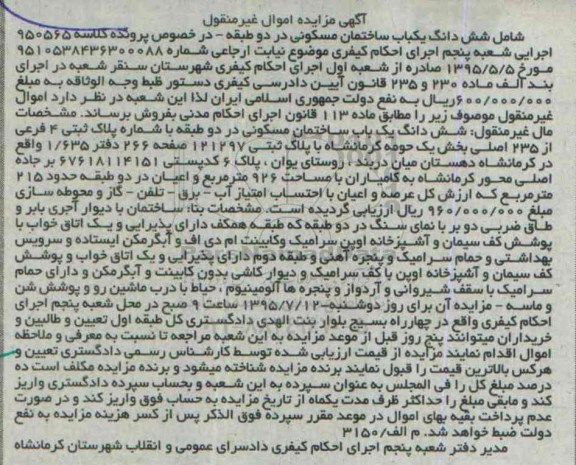 آگهی مزایده اموال غیرمنقول
شامل شش دانگ یکباب ساختمان مسکونی در دو طبقه - در خصوص پرونده کلاسه ۹۵۰۵۶۵
اجرایی شعبه پنجم اجرای احکام کیفری موضوع نیابت ارجاعی شماره ۹۵۱۰۵۳۸۴۳۶۳۰۰۰۸۸
مورخ ۱۳۹۵/۵/۵ صادره از شعبه اول اجرای احکام کیفری شهرستان سنقر شعبه در اجرای
بند الف ماده ۲۳۰ و ۲۳۵ قانون آیین دادرسی کیفری دستور ظبط وجه الوثاقه به مبلغ
۶۰۰/۰۰۰/۰۰۰ریال به نفع دولت جمهوری اسلامی ایران لذا این شعبه در نظر دارد اموال
غیرمنقول موصوف زیر را مطابق ماده ۱۱۳ قانون اجرای احکام مدنی بفروش برساند. مشخصات
مال غیرمنقول: شش دانگ یک باب ساختمان مسکونی در دو طبقه با شماره پلاک ثبتی ۴ فرعی
از ۲۳۵ اصلی بخش یک حومه کرمانشاه با پلاک ثبتی ۱۲۱۲۹۷ صفحه ۲۶۶ دفتر ۱/۶۳۵ واقع
در کرمانشاه دهستان میان دربند، روستای یوان ، پلاک ۶ کدپستی ۶۷۶۱۸۱۱۴۱۵۱ بر جاده
اصلی محور کرمانشاه به کامیاران با مساحت ۹۲۶ مترمربع و اعیان در دو طبقه حدود ۲۱۵
مترمربع که ارزش کل عرصه و اعیان با احتساب امتیاز آب - برق - تلفن - گاز و محوطه سازی
مبلغ ۹۶۰/۰۰۰/۰۰۰ ریال ارزیابی گردیده است. مشخصات بنا: ساختمان با دیوار آجری باربر و
طاق ضربی دو بر با نمای سنگ در دو طبقه که طبقه همکف دارای پذیرایی و یک اتاق خواب با
پوشش کف سیمان و آشپزخانه اوپن سرامیک وکابینت ام دی اف و آبگرمکن ایستاده و سرویس
بهداشتی و حمام سرامیک و پنجره آهنی و طبقه دوم دارای پذیرایی و یک اتاق خواب و پوشش
کف سیمان و آشپزخانه اوپن با کف سرامیک و دیوار کاشی بدون کابینت و آبگرمکن و دارای حمام
سرامیک با سقف شیروانی و آردواز و پنجره ها آلومینیوم ، حیاط با درب ماشین رو و پوشش شن
و ماسه - مزایده آن برای روز دوشنبه-۱۳۹۵/۷/۱۲ ساعت ۹ صبح در محل شعبه پنجم اجرای
احکام کیفری واقع در چهارراه بسیج بلوار بنت الهدی دادگستری کل طبقه اول تعیین و طالبین و
خریداران میتوانند پنج روز قبل از موعد مزایده به این شعبه مراجعه تا نسبت به معرفی و ملاحظه
اموال اقدام نمایند مزایده از قیمت ارزیابی شده توسط کارشناس رسمی دادگستری تعیین و
هرکس بالاترین قیمت را قبول نمایند برنده مزایده شناخته میشود و برنده مزایده مکلف است ده
درصد مبلغ کل را فی المجلس به عنوان سپرده به این شعبه و بحساب سپرده دادگستری واریز
کند و مابقی مبلغ را حداکثر ظرف مدت یکماه از تاریخ مزایده به حساب فوق واریز کند و در صورت
عدم پرداخت بقیه بهای اموال در موعد مقرر سپرده فوق الذکر پس از کسر هزینه مزایده به نفع
دولت ضبط خواهد شد. م الف/۳۱۵۰
مدیر دفتر شعبه پنجم اجرای احکام کیفری دادسرای عمومی و انقلاب شهرستان کرمانشاه